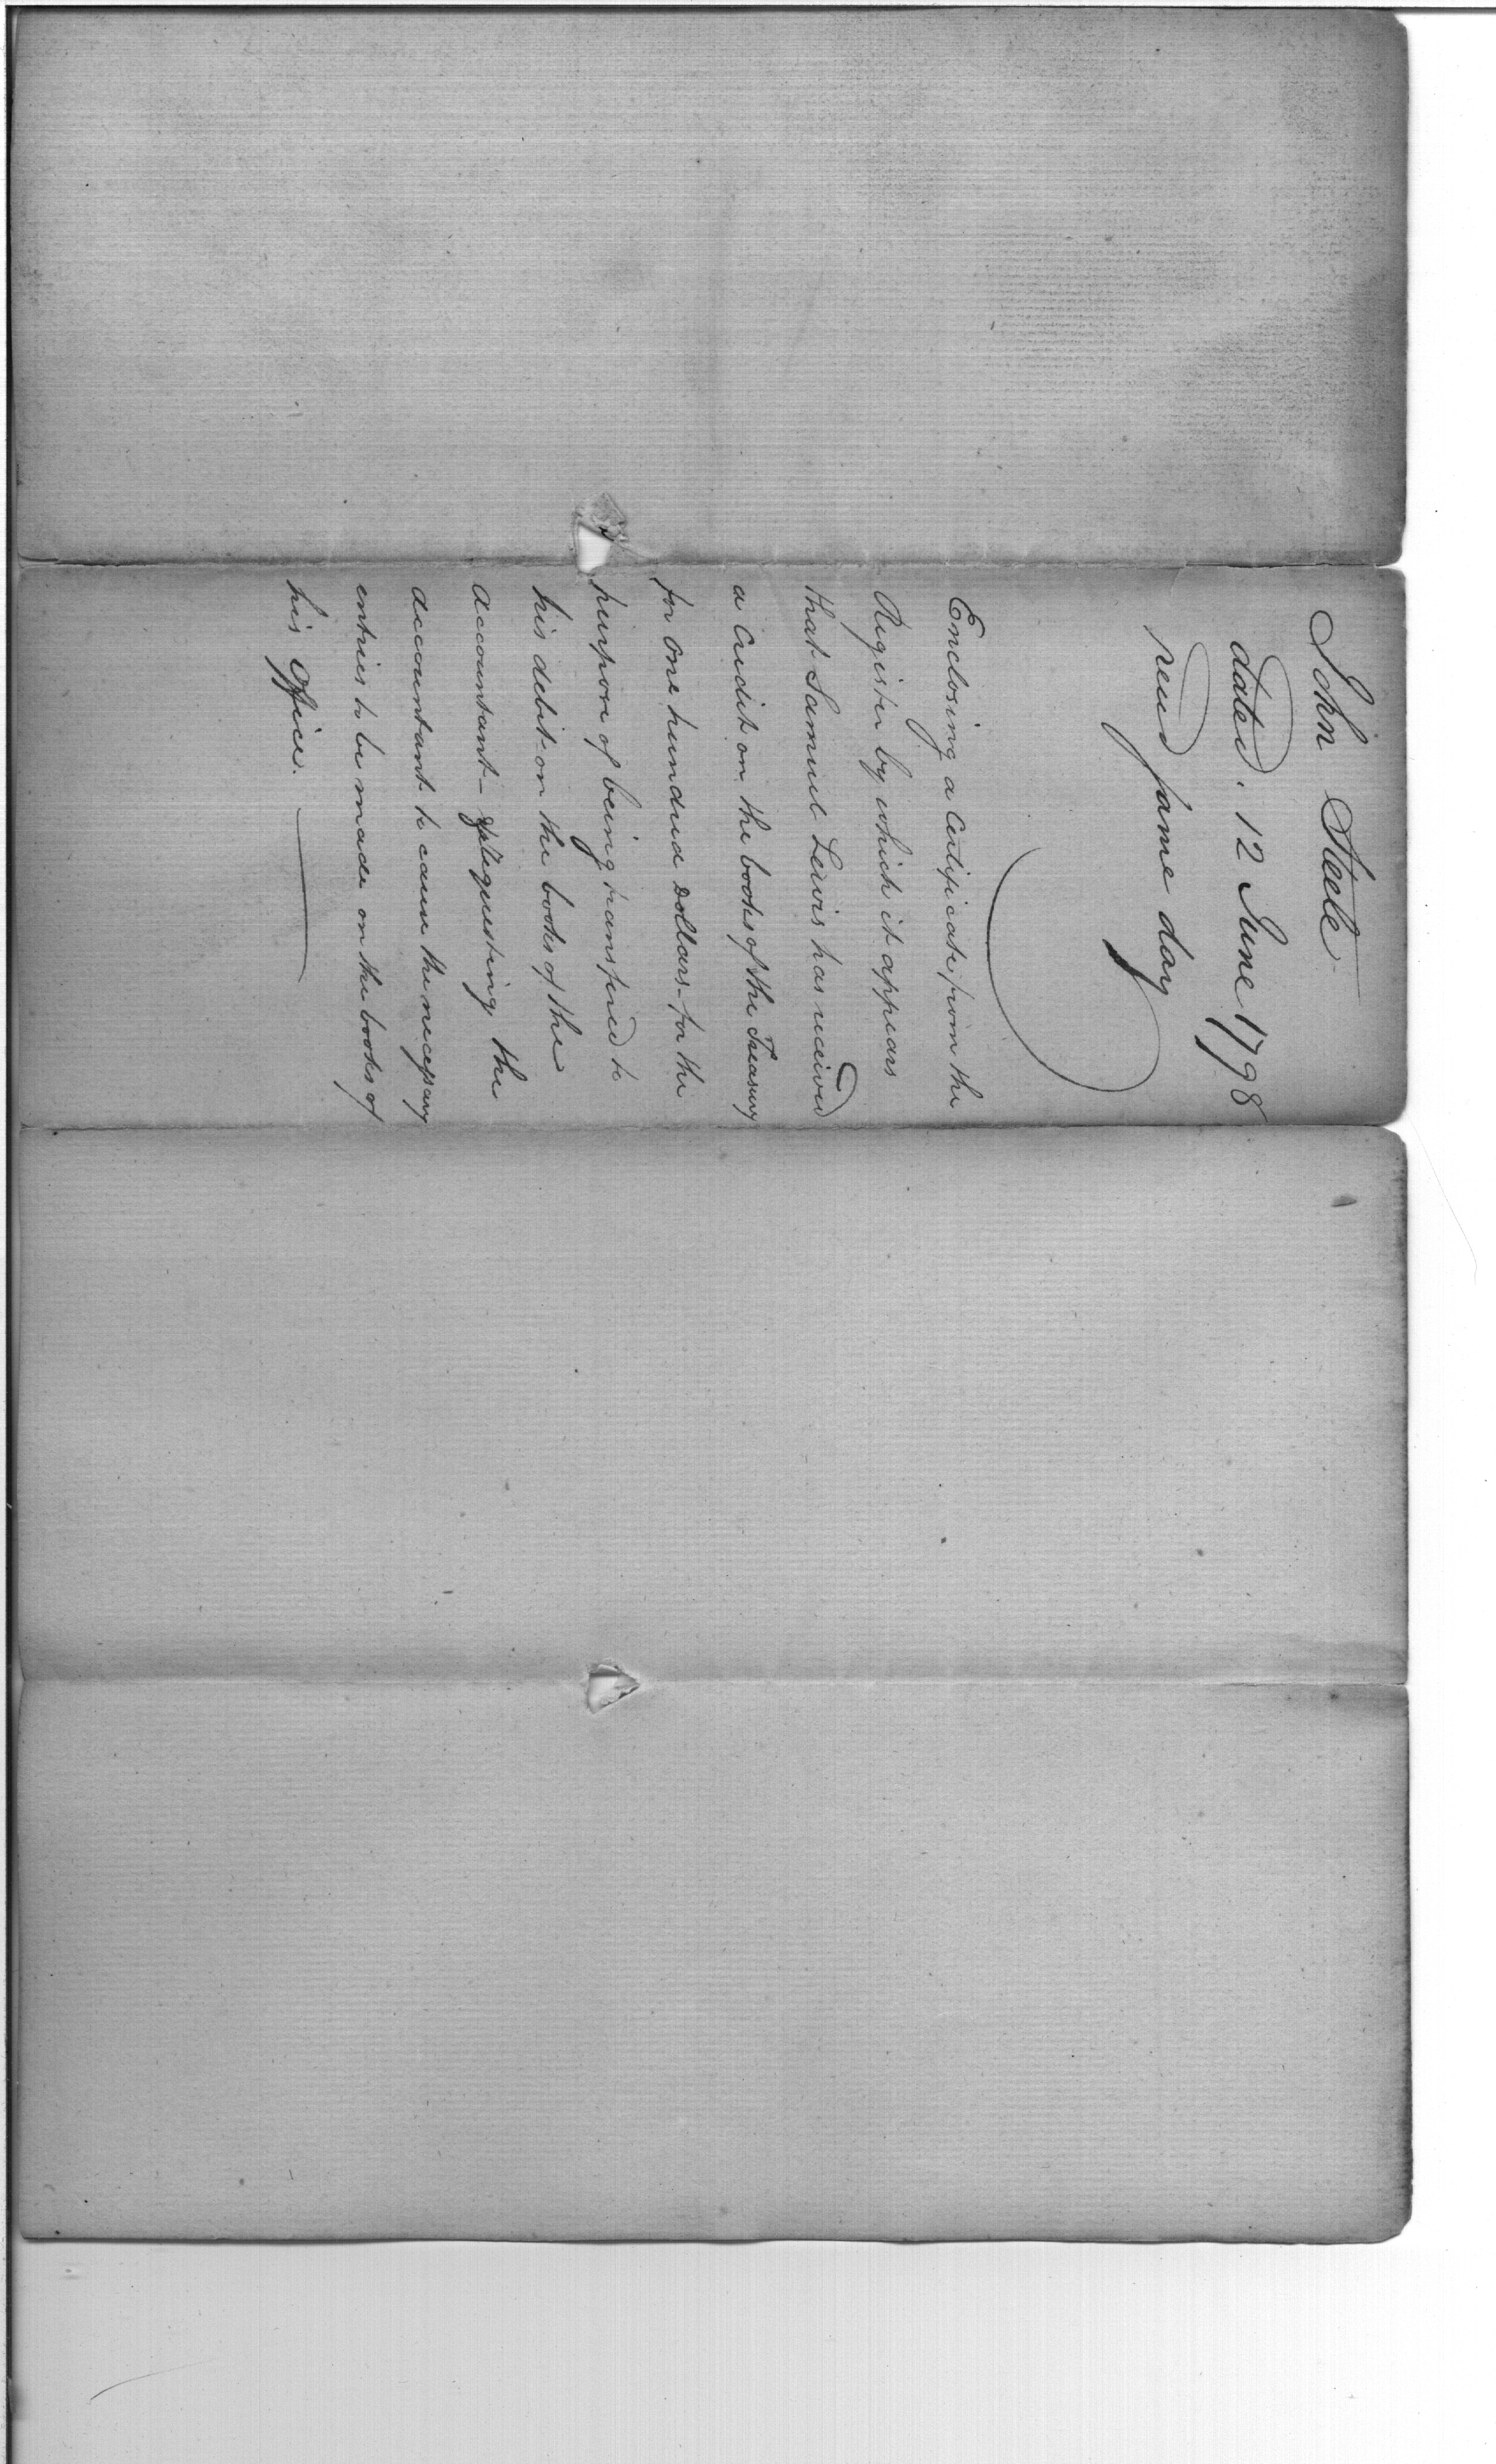 John Steele
dated. 12 June 1798
recd same day
Enclosing a Certificate from the
Register by which it appears
that Samuel Lewis has received
a Credit on the books of the Treasury
for one hundred Dollars - for the
purpose of being transfered to
his debit on the books of the
accountant - requesting the
accountant to cause the necessary
entries to be made on the books of
his office.